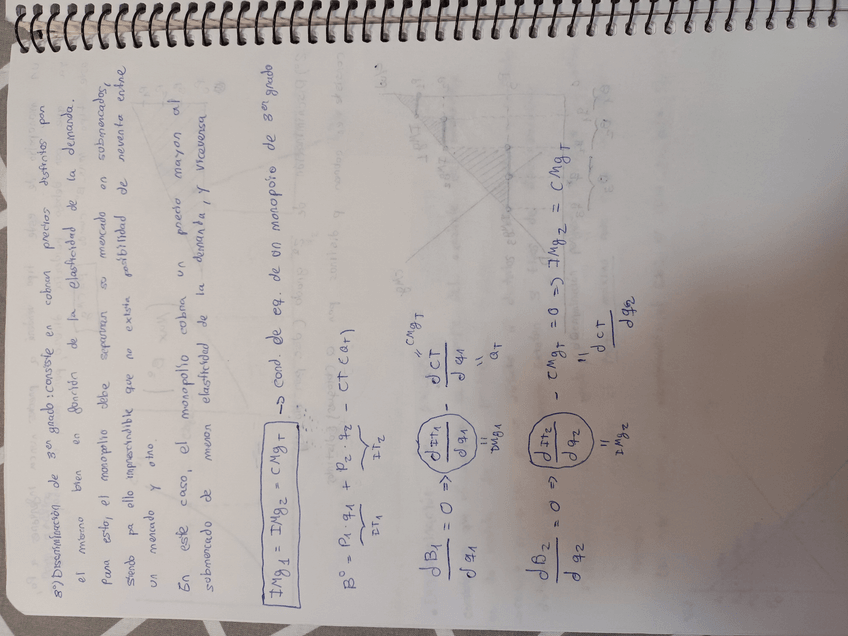 8º) Discriminación de 3er grado: consiste en cobran precios distintos pon
el mismo bien en función de la elasticidad de la demanda.
Para esto, el monopolio debe separan su mercado en submercados,
siendo pa ello imprescindible que no exista posibilidad de reventa entre
un mercado y otro.
En este caso, el monopolio cobra un precio mayor al
submercado de menor elasticidad de la demanda, y viceversa
IMg1 = IMg2 = CMgT → cond. de eq. de un monopolio de 3er grado
Bº = P1 · q1 + P2 · q2 - CT (qT)
IT1 IT2
dB1/dq1 = 0 => dIT1/dq1 - dCT/dq1
" CMgT
" IMg1 " qT
dB2/dq2 = 0 => dIT2/dq2 - CMgT = 0 => IMg2 = CMgT
" IMg2 " dCT/dq2